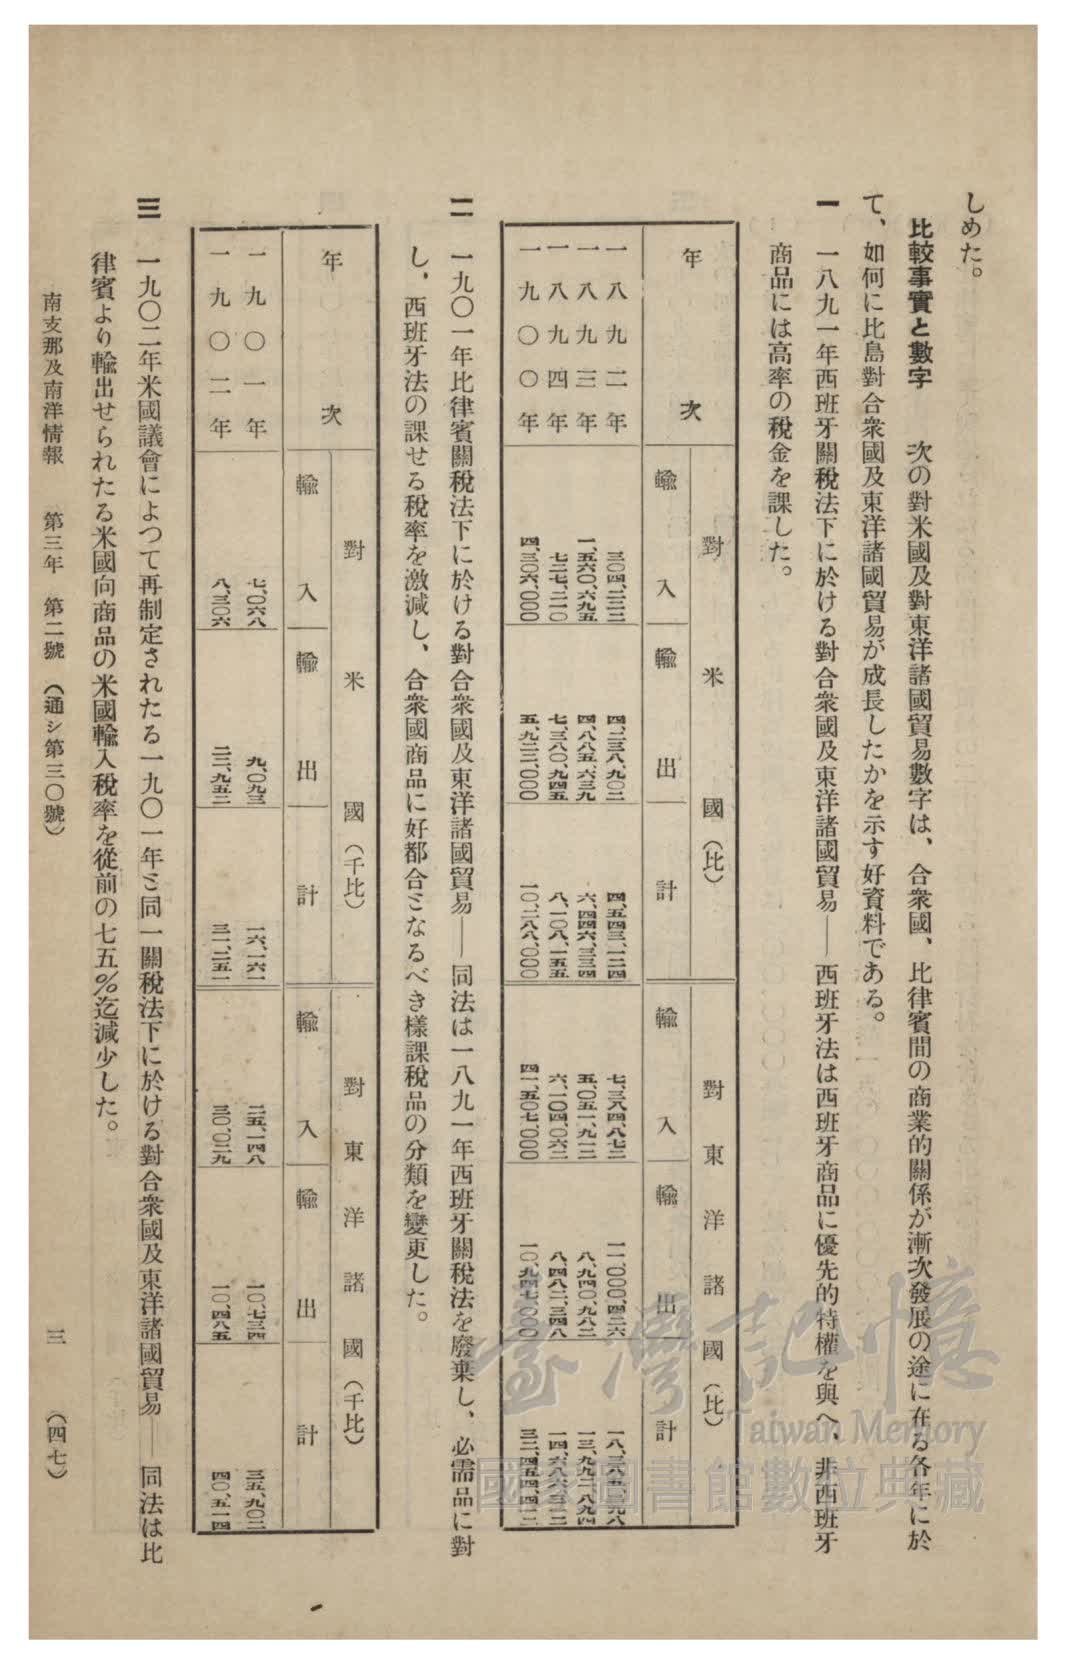 しめた。
比較事實と數字　次の對米國及對東洋諸國貿易數字は、合衆國、比律賓間の商業的關係が漸次發展の途に在る各年に於
て、如何に比島對合衆國及東洋諸國貿易が成長したかを示す好資料である。
一　一八九一年西班牙關稅法下に於ける對合衆國及東洋諸國貿易――西班牙法は西班牙商品に優先的特權を與へ、非西班牙
商品には高率の稅金を課した。
年次　對米國（比）　對東洋諸國（比）
輸入　輸出　計　輸入　輸出　計
一八九二年　三〇四、二二二　四、二三八、九〇二　四、五四三、一二四　七、三八四、八七二　一一、〇〇〇、四二六　一八、三八五、二九八
一八九三年　一、五六〇、六九五　四、八八五、六三九　六、四四六、三三四　五、〇五一、九一二　八、九四〇、九八二　一三、九九二、八九四
一八九四年　七二七、二一〇　七、三八〇、九四五　八、一〇八、一五五　六、一〇四、〇六二　八、四八二、三四八　一四、六八六、三二二
一九〇〇年　四、三〇六、〇〇〇　五、九二二、〇〇〇　一〇、二八八、〇〇〇　四一、五〇七、〇〇〇　一〇、九四七、〇〇〇　三二、四五四、四一二
二　一九〇一年比律賓關稅法下に於ける對合衆國及東洋諸國貿易――同法は一八九一年西班牙關稅法を廢棄し、必需品に對
し、西班牙法の課せる稅率を激減し、合衆國商品に好都合となるべき樣課稅品の分類を變更した。
年次　對米國（千比）　對東洋諸國（千比）
輸入　輸出　計　輸入　輸出　計
一九〇一年　七、〇六八　九、〇九三　一六、一六一　二五、一四八　一〇、七三四　三五、九〇二
一九〇二年　八、三〇六　二二、九五二　三一、二五一　三〇、〇二九　一〇、四八五　四〇、五一四
三　一九〇二年米國議會によつて再制定されたる一九〇一年と同一關稅法下に於ける對合衆國及東洋諸國貿易――同法は比
律賓より輸出せられたる米國向商品の米國輸入稅率を從前の七五%迄減少した。
南支那及南洋情報　第三年　第二號　（通シ第三〇號）　三　（四七）
臺灣記憶
Taiwan Memory
國家圖書館數位典藏